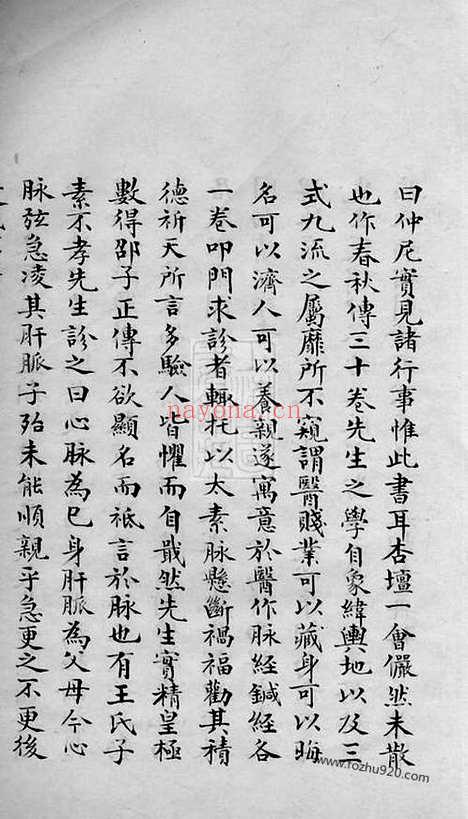 曰仲尼實見諸行事惟此書耳杏壇一會儼然未散
也作春秋傳三十卷先生之學自象緯輿地以及三
式九流之屬靡所不窺謂醫賤業可以藏身可以晦
名可以濟人可以養親遂寓意於醫作脉經鍼經各
一卷叩門求診者輙托以太素脉懸斷禍福勸其積
德祈天所言多驗人皆懼而自戢然先生實精皇極
數得邵子正傳不欲顯名而祗言於脉也有王氏子
素不孝先生診之曰心脉為己身肝脈為父母今心
脉弦急凌其肝脈子殆未能順親乎急更之不更後
nayona.cn
www.fozhu920.com